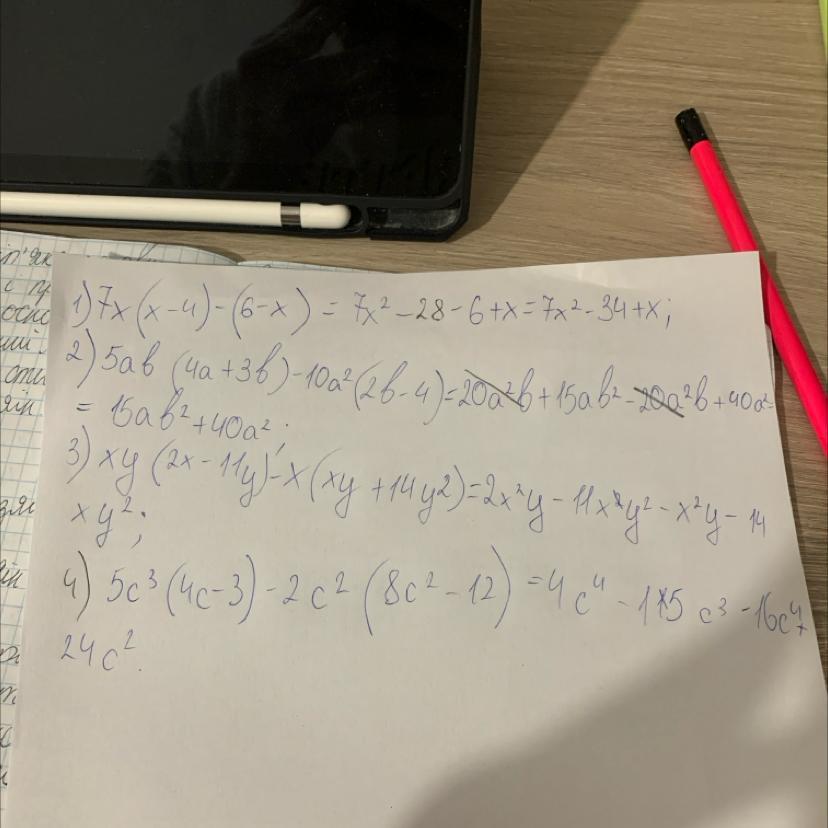 1) 7x (x-4) - (6-x) = 7x² - 28 - 6 + x = 7x² - 34 + x;
2) 5ab (4a + 3b) - 10a² (2b - 4) = 20a²b + 15ab² - 20a²b + 40a² =
= 15ab² + 40a²;
3) xy (2x - 11y) - x (xy + 14y²) = 2x²y - 11xy² - x²y - 14
xy²;
4) 5c³ (4c - 3) - 2c² (8c² - 12) = 4c⁴ - 15c³ - 16c⁴ +
24c².